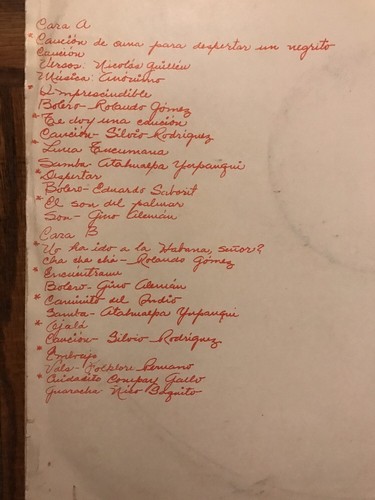 Cara A
* Canción de cuna para despertar un negrito
Canción
Versos: Nicolás Guillén
Música: Anónimo
* Imprescindible
Bolero - Rolando Gómez
* Te doy una canción
Canción - Silvio Rodríguez
* Luna Tucumana
Samba - Atahualpa Yupanqui
* Despertar
Bolero - Eduardo Saborit
* El son del palmar
Son - Gino Alemán
Cara B
* Ud ha ido a la Habana, señor?
Cha cha chá - Rolando Gómez
* Encuéntrame
Bolero - Gino Alemán
* Caminito del Indio
Samba - Atahualpa Yupanqui
* Ojalá
Canción - Silvio Rodríguez
*
Vals - Folklore Peruano
* Cuidadito Compay Gallo
Guaracha - Ñico Saquito